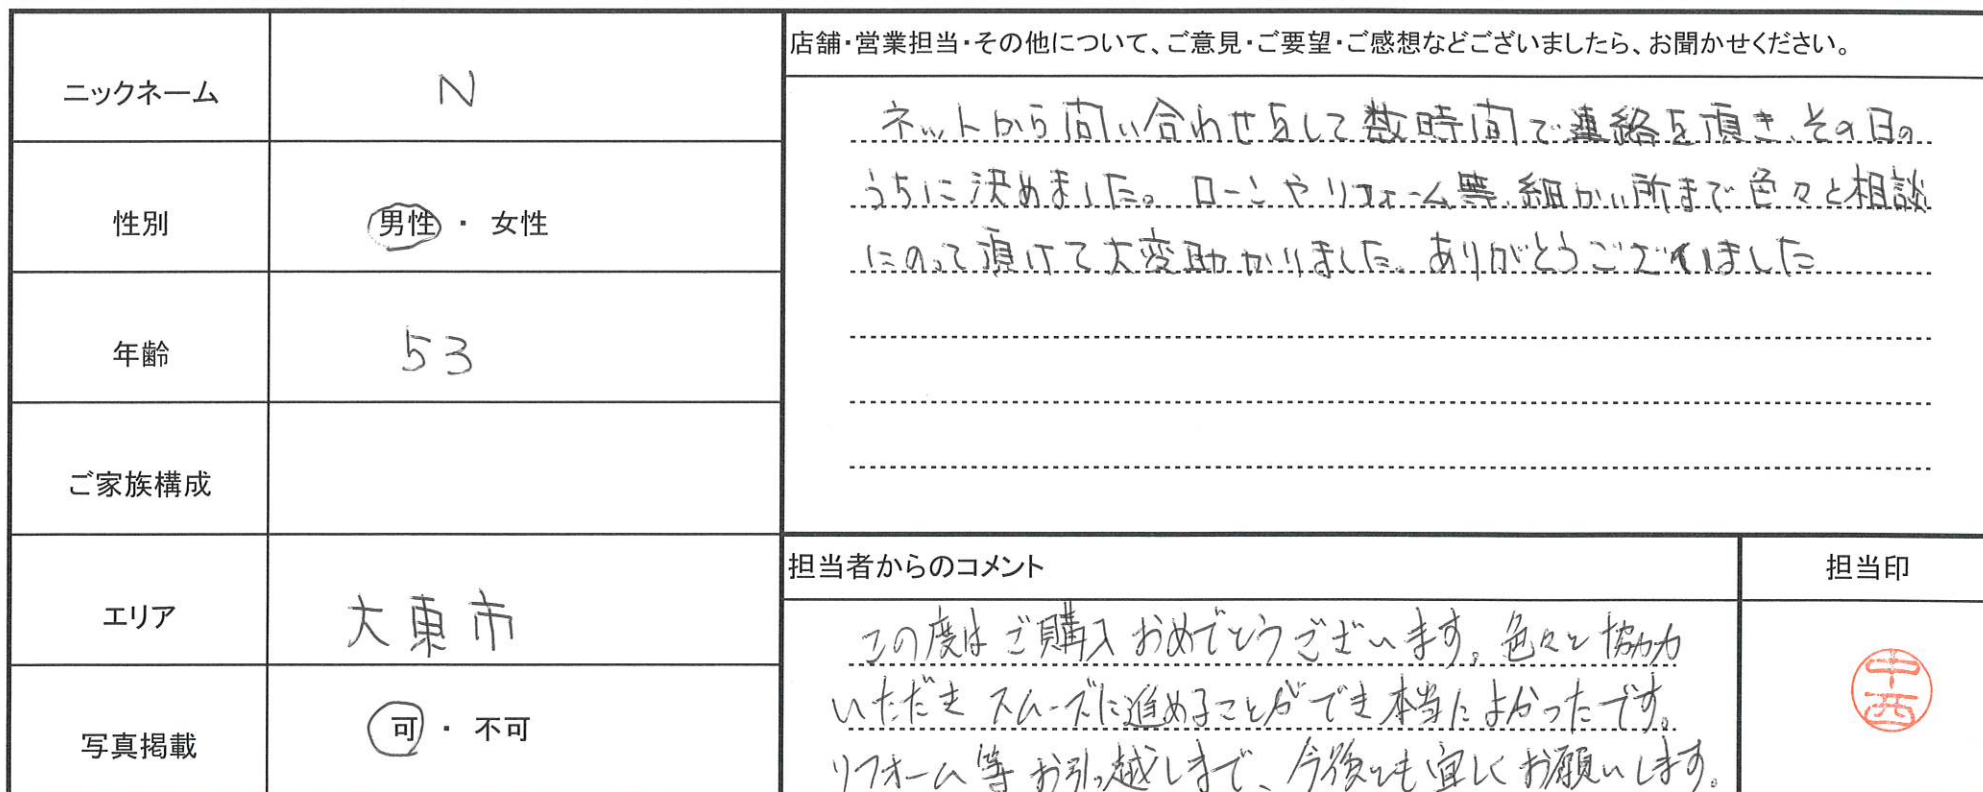 ニックネーム N
性別 男性 ・ 女性
年齢 53
ご家族構成
エリア 大東市
写真掲載 可 ・ 不可
店舗・営業担当・その他について、ご意見・ご要望・ご感想などございましたら、お聞かせください。
ネットから問い合わせをして数時間で連絡を頂き、その日の
うちに決めました。ローンやリフォーム等、細かい所まで色々と相談
にのって頂けて大変助かりました。ありがとうございました
担当者からのコメント
この度はご購入おめでとうございます。色々と協力
いただき スムーズに進めることができ本当によかったです。
リフォーム等 お引っ越しまで、今後とも宜しくお願いします。
担当印
中西